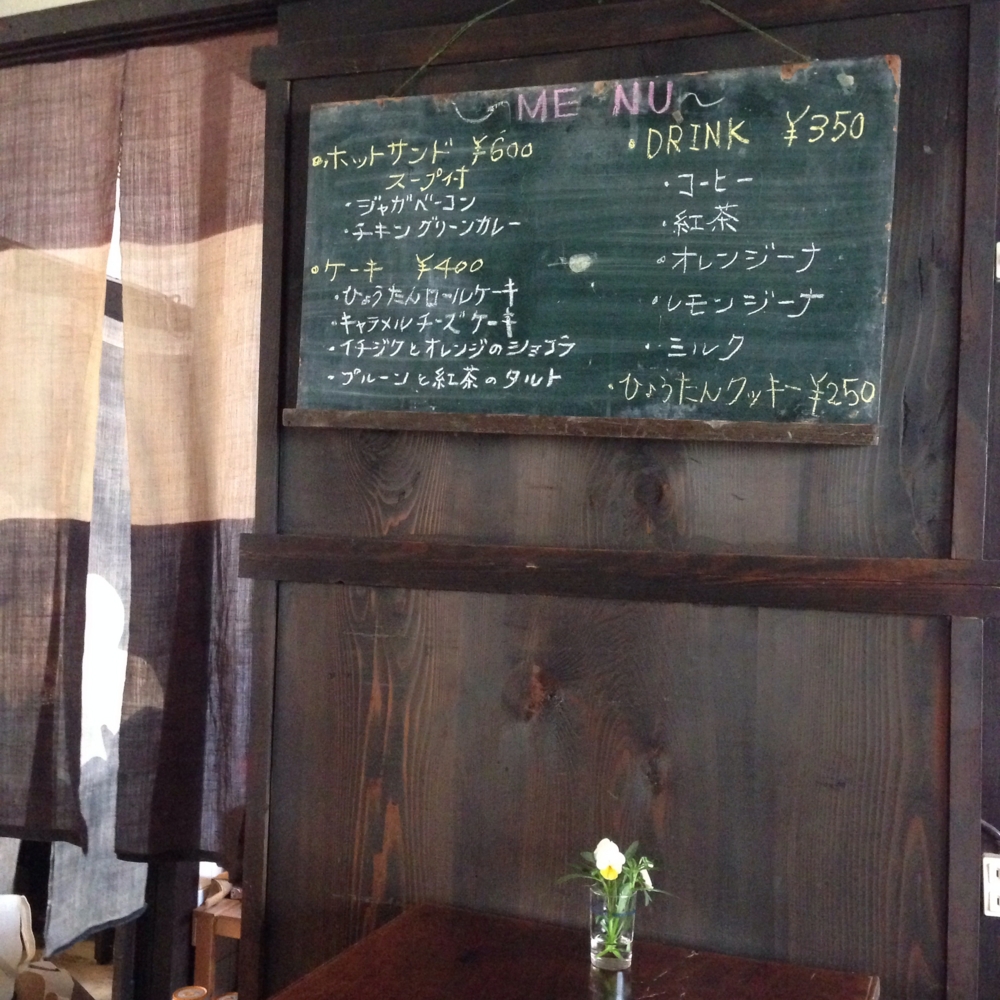 ～ME NU～
・ホットサンド ¥600
スープ付
・ジャガベーコン
・チキングリーンカレー
・ケーキ ¥400
・ひょうたんロールケーキ
・キャラメルチーズケーキ
・イチジクとオレンジのショコラ
・プルーンと紅茶のタルト
・DRINK ¥350
・コーヒー
・紅茶
・オレンジーナ
・レモンジーナ
・ミルク
・ひょうたんクッキー ¥250